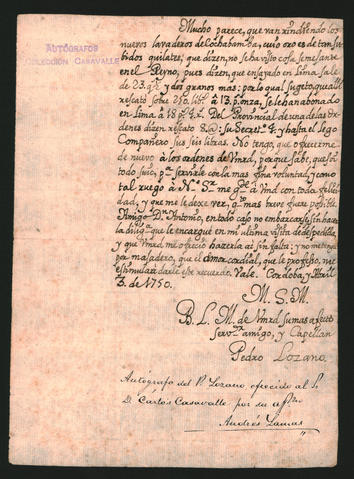 AUTÓGRAFOS
COLECCIÓN CASAVALLE
Mucho parece, que van rindiendo los
nuevos lavaderos de Cochabamba, cuio oro es de tan
bidos quilates, que dizen, no se ha visto cosa semejante
en el Reyno, pues dizen, que ensayado en Lima, sale
de 23. q.s y dos granos mas: por lo qual sugeto, que alli
rescató sobre 250. lib.s à 13. p.s onza, se le han abonado
en Lima à 18 p.s Del Provincial de una de las Or-
denes dizen rescató 8 su Secret.o y hasta el Lego
Compañero sus seis libras. No tengo, que ofrecerme
de nuevo à los ordenes de Vmrd, porque sabe, que soi
todo suio, p.a servirle con la mas fina voluntad, y como
tal ruego à N.o S.r me g.e à Vmd con toda felici
dad, y que me le dexe ver, q.to mas breve fuere posible.
Amigo D.n Antonio, en todo caso no embarcarse sin hacer
la dilig.a que le encargué en mi ultima visita de despedida,
y que Vmrd me ofreció hazerla assi sin falta: y no me tenga
por majadero, que el amor cordial, que le professo, me
estimula à darle este recuerdo. Vale. Cordoba, y Abril
3. de 1750.
M. S. M.
B. L. M. de Vmrd su mas afecto
Serv.or amigo, y Capellan
Pedro Lozano.
Autógrafo del P. Lozano, ofrecido al S.r
D. Carlos Casavalle, por su af.mo
Andrés Lamas